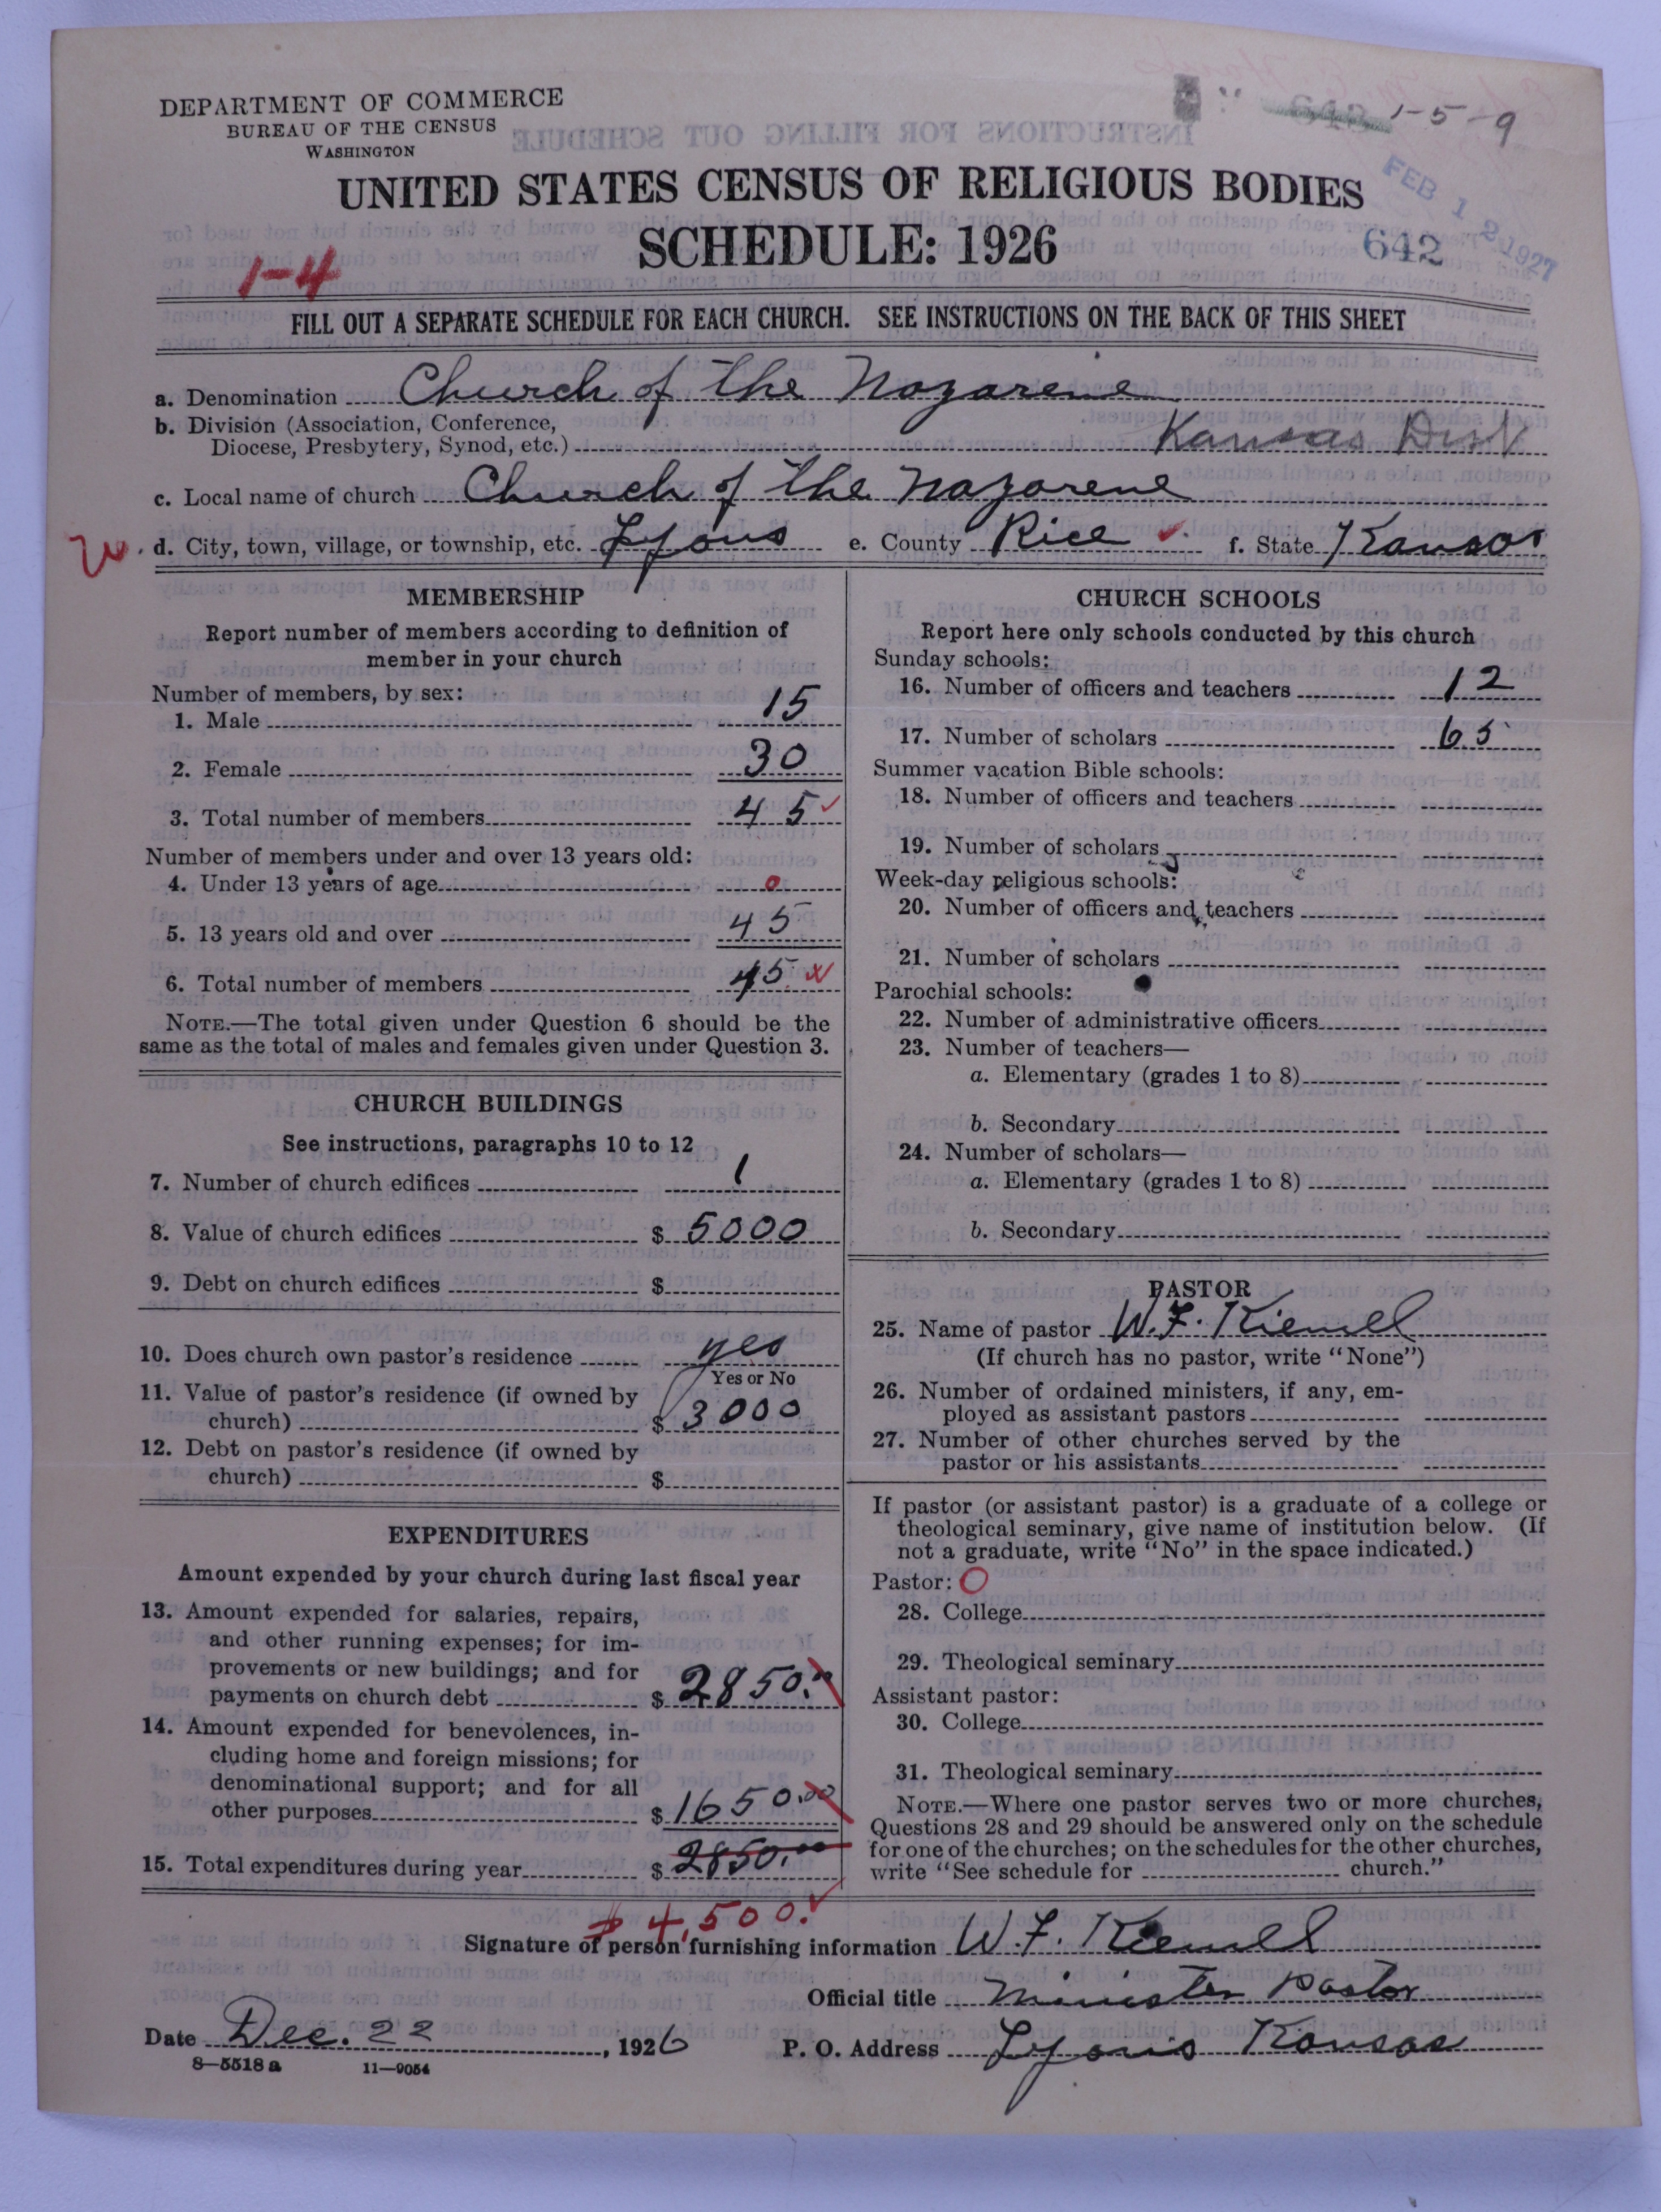 DEPARTMENT OF COMMERCE
BUREAU OF THE CENSUS
WASHINGTON
1-5-9
UNITED STATES CENSUS OF RELIGIOUS BODIES
SCHEDULE: 1926
642
FEB 12 1927
1-4
FILL OUT A SEPARATE SCHEDULE FOR EACH CHURCH. SEE INSTRUCTIONS ON THE BACK OF THIS SHEET
a. Denomination Church of the Nazarene
b. Division (Association, Conference,
Diocese, Presbytery, Synod, etc.) Kansas Dist
c. Local name of church Church of the Nazarene
d. City, town, village, or township, etc. Lyons e. County Rice f. State Kansas
MEMBERSHIP
Report number of members according to definition of
member in your church
Number of members, by sex:
1. Male 15
2. Female 30
3. Total number of members 45
Number of members under and over 13 years old:
4. Under 13 years of age 0
5. 13 years old and over 45
6. Total number of members 45
NOTE.—The total given under Question 6 should be the
same as the total of males and females given under Question 3.
CHURCH BUILDINGS
See instructions, paragraphs 10 to 12
7. Number of church edifices 1
8. Value of church edifices $ 5000
9. Debt on church edifices $
10. Does church own pastor's residence yes
Yes or No
11. Value of pastor's residence (if owned by
church) $ 3000
12. Debt on pastor's residence (if owned by
church) $
EXPENDITURES
Amount expended by your church during last fiscal year
13. Amount expended for salaries, repairs,
and other running expenses; for im-
provements or new buildings; and for
payments on church debt $ 2850.00
14. Amount expended for benevolences, in-
cluding home and foreign missions; for
denominational support; and for all
other purposes $ 1650.00
15. Total expenditures during year $ 2850.00
$ 4,500.
CHURCH SCHOOLS
Report here only schools conducted by this church
Sunday schools:
16. Number of officers and teachers 12
17. Number of scholars 65
Summer vacation Bible schools:
18. Number of officers and teachers
19. Number of scholars
Week-day religious schools:
20. Number of officers and teachers
21. Number of scholars
Parochial schools:
22. Number of administrative officers
23. Number of teachers—
a. Elementary (grades 1 to 8)
b. Secondary
24. Number of scholars—
a. Elementary (grades 1 to 8)
b. Secondary
PASTOR
25. Name of pastor W. F. Kiemel
(If church has no pastor, write "None")
26. Number of ordained ministers, if any, em-
ployed as assistant pastors
27. Number of other churches served by the
pastor or his assistants
If pastor (or assistant pastor) is a graduate of a college or
theological seminary, give name of institution below. (If
not a graduate, write "No" in the space indicated.)
Pastor: O
28. College
29. Theological seminary
Assistant pastor:
30. College
31. Theological seminary
NOTE.—Where one pastor serves two or more churches,
Questions 28 and 29 should be answered only on the schedule
for one of the churches; on the schedules for the other churches,
write "See schedule for church."
Signature of person furnishing information W. F. Kiemel
Official title Minister Pastor
Date Dec. 22, 1926 P. O. Address Lyons Kansas
8—5518 a 11—9054